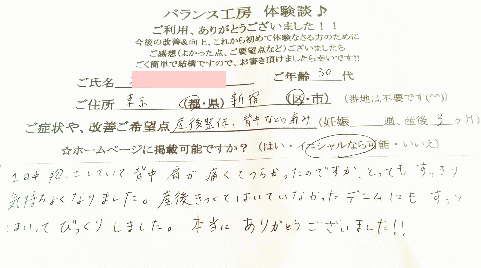 バランス工房 体験談♪
ご利用、ありがとうございました！！
今後の改善&向上、これから初めて体験なさる方のために
ご感想(よかった点、ご要望点など)ございましたら
ごく簡単で結構ですので、お書き頂けましたら幸いです!!
ご氏名 ご年齢 30 代
ご住所 東京 (都・県) 新宿 (区・市) (番地は不要です(^^))
ご症状や、改善ご希望点 産後整体、背中などの痛み (妊娠 週、産後 3 ヶ月)
☆ホームページに掲載可能ですか？ (はい・イニシャルなら可能・いいえ)
抱っこしていて背中 肩が 痛くてつらかったのですが、とっても すっきり
気持ちよくなりました。産後きつくてはいていなかった デニムにも すっと
はいって びっくり しました。 本当に ありがとうございました!!